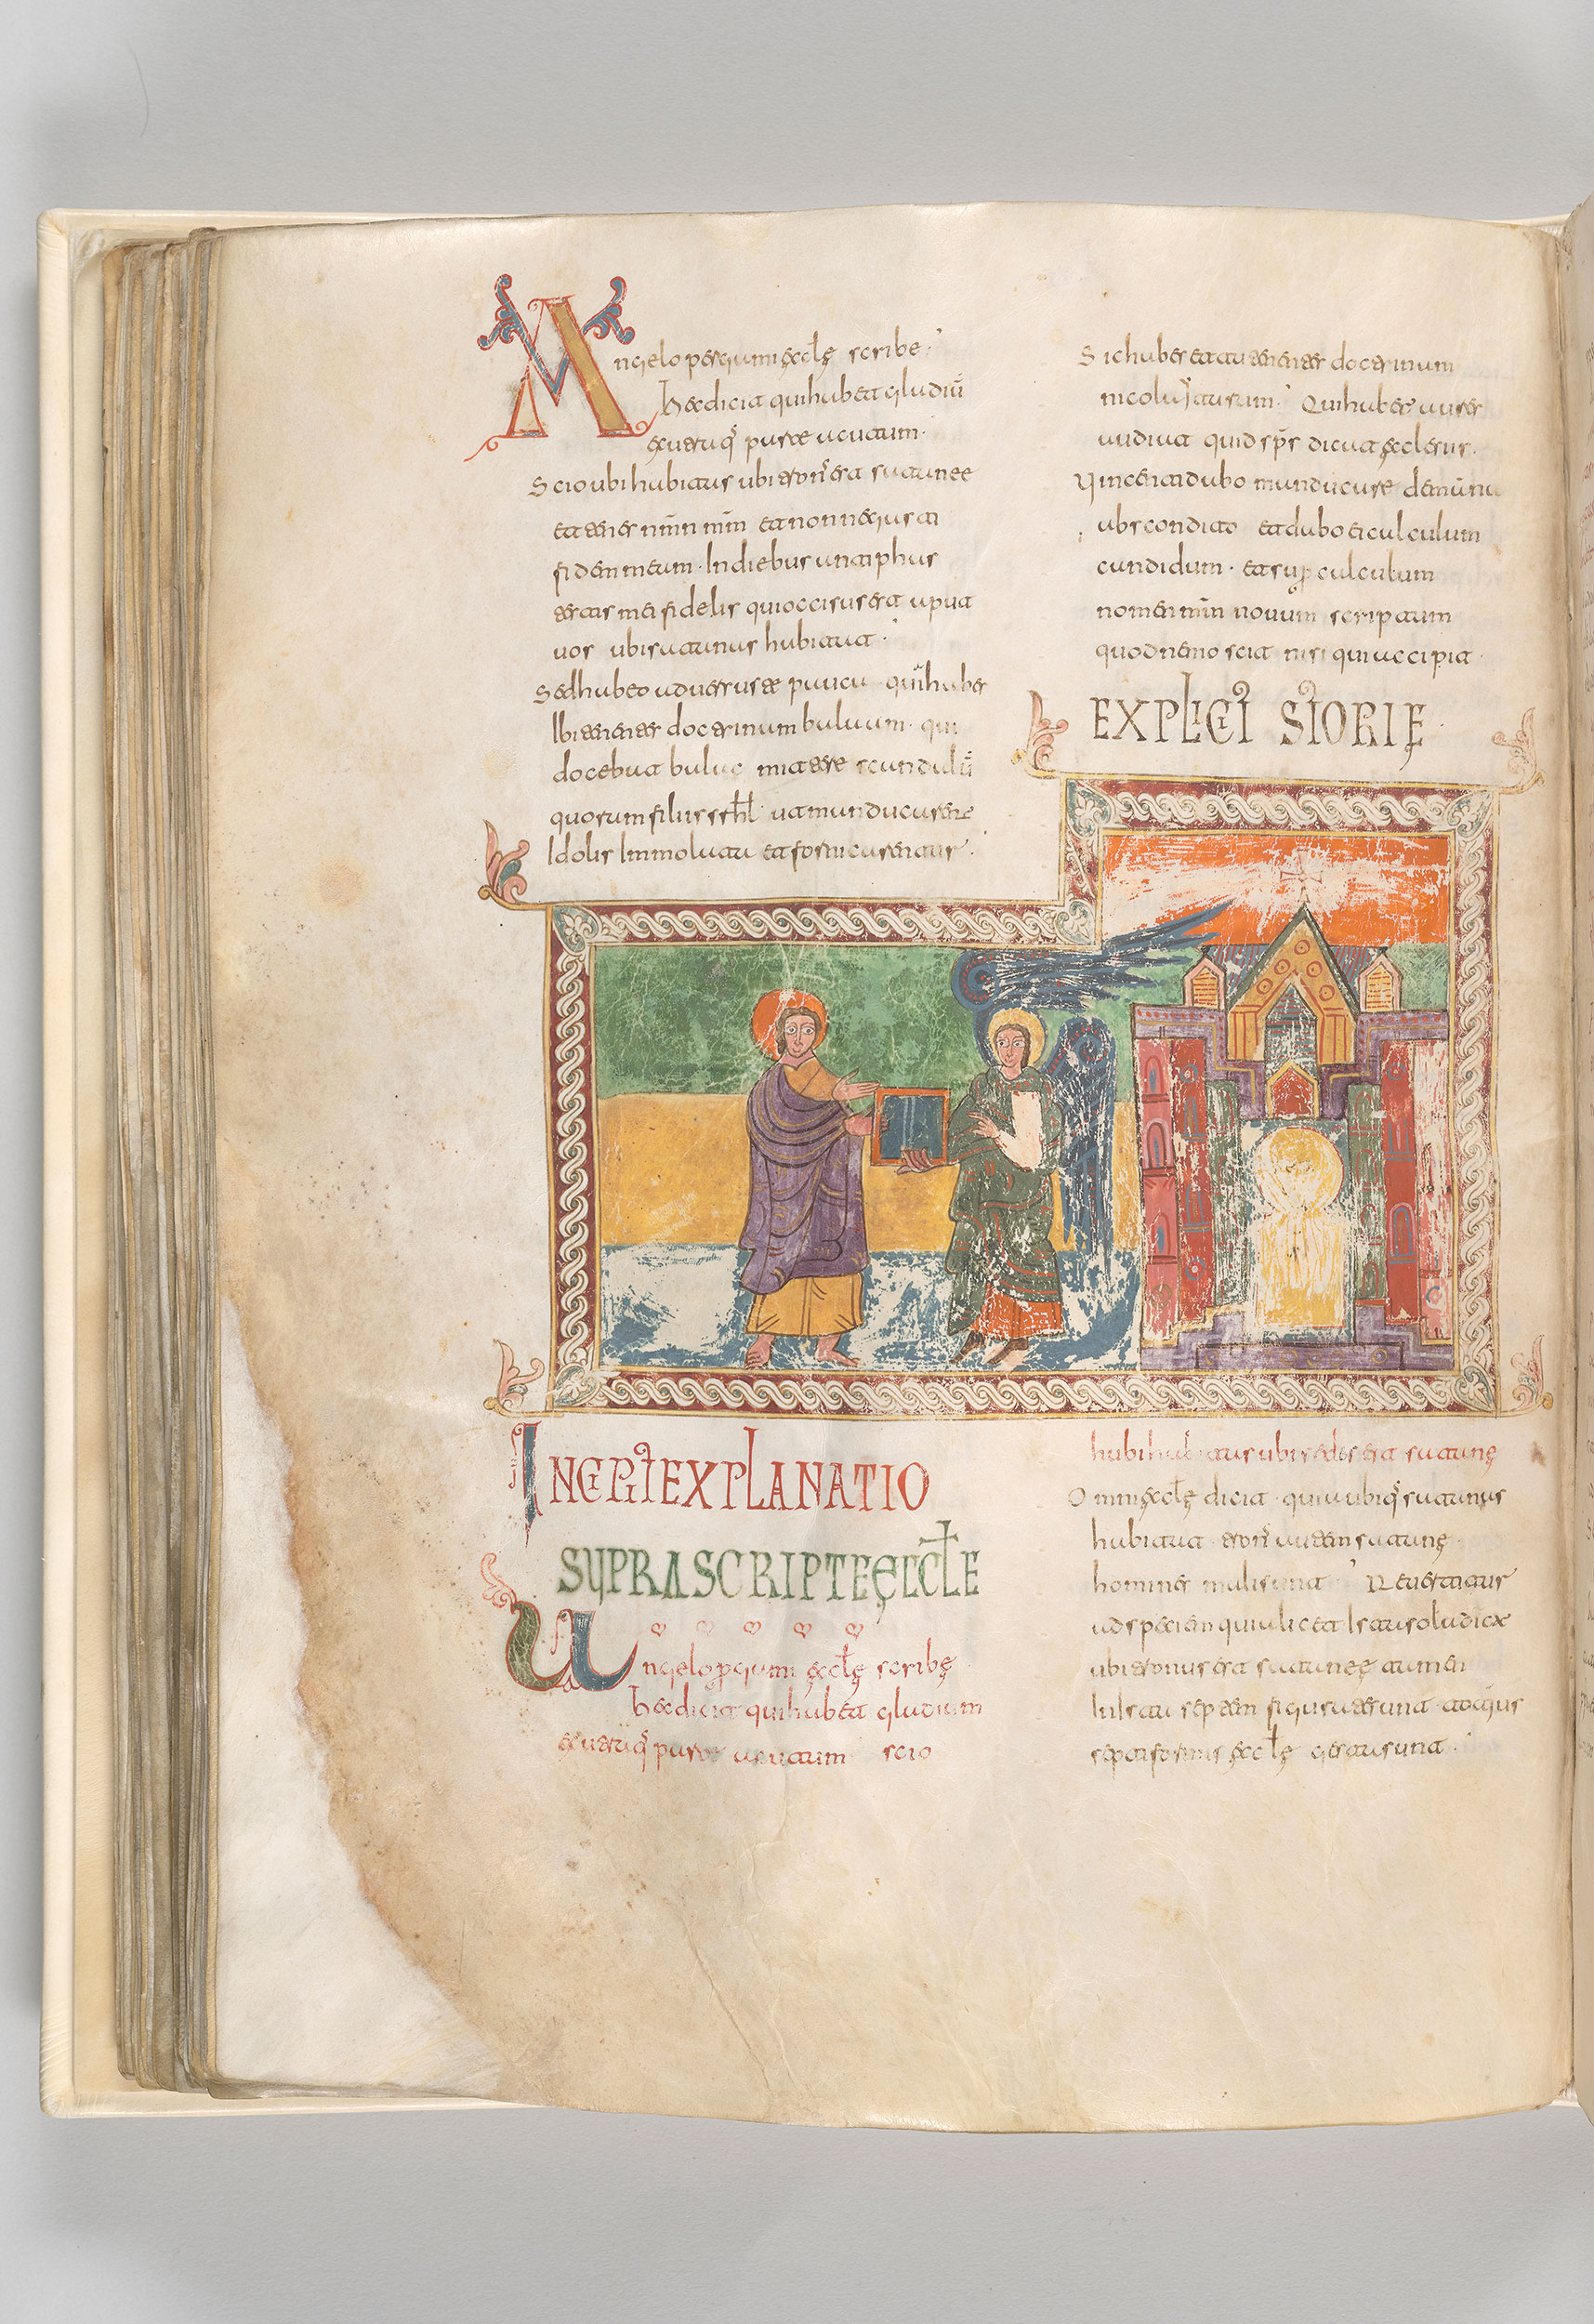 Angelo pergami ęcclę scribe
Hec dicit qui habet gladiū
ex utraq parte acutum
Scio ubi habitas ubi tron est satanee
et tenes nmn mm et non negasti
fidem meam. In diebus antiphas
testis mei fidelis qui occisus est aput
uos ubi satanas habitat
Sed habeo aduersus te pauca quia habes
Ibi tenentes doctrinam balaam. qui
docebat balac mittere scandalū
quorum filiis srhl ut manducarent
Idolis Immolatu et fornicarentur
Sic habes et tu tenentes doctrinam
nicolaytarum. Qui habet aures
audiat quid sps dicat ęcclesiis.
Vincenti dabo manducare de manna
absconditο et dabo ei calculum
candidum. et sup calculum
nomen mm nouum scriptum
quod nemo scit nisi qui accipit.
EXPLICIT STORIĘ
INCIPIT EXPLANATIO
SUPRASCRIPTE ĘCCLE
Angelo pgami ęcclę scribę
Hec dicit qui habet gladium
ex utraq parte acutum scio
habitas ubi sedes est satanę
Omni ęcclę dicit. quia ubiq satanas
habitat. tron autem satanę
homines mali sunt Reuertitur
ad speciem quia licet Istas
ubi tronus est sataneę tamen
septem figurate sunt
septiformis ęcclę gesta sunt.